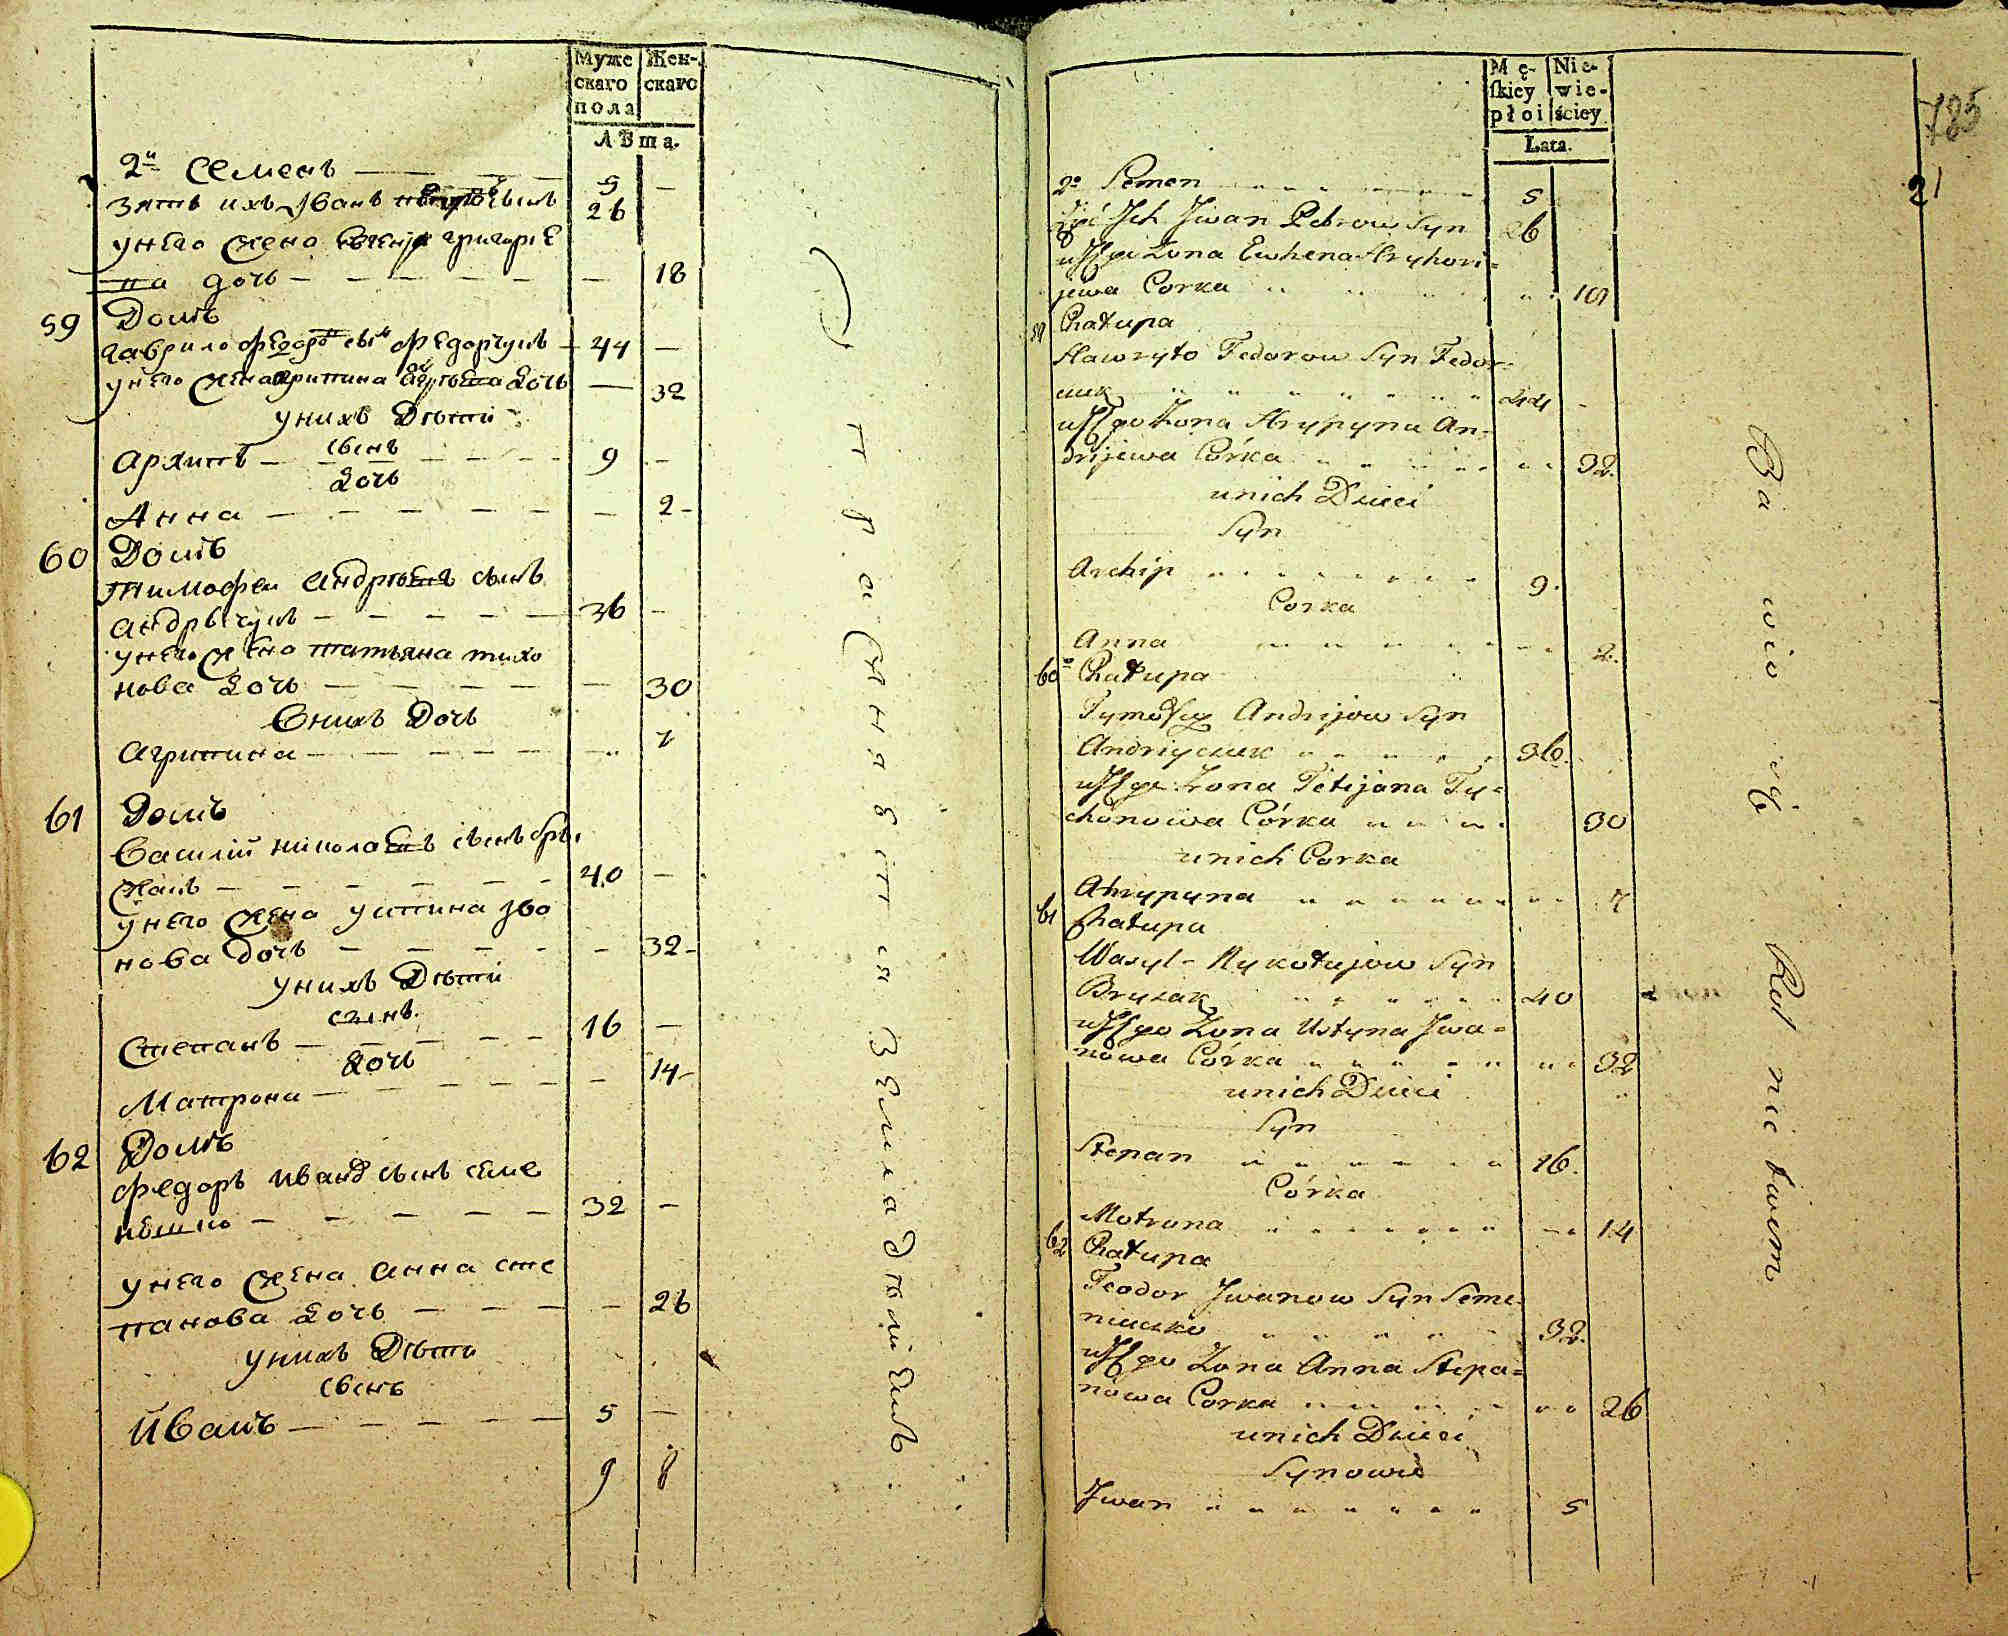 Муже
скаго
пола
Жен-
скаго
Лѣта.
2й Семенъ — 5 —
зять ихъ Иванъ Петровъ сынъ 26
у него жена Евгенія Григорье
на дочь — — 18
59 Домъ
Гаврило Федоровъ сынъ Федорчукъ — 44 —
у него жена Агрипина Андрѣева дочь — 32
у нихъ Дѣти
сынъ
Архипъ — 9 —
дочь
Анна — — 2 -
60 Домъ
Тимофей Андрѣевъ сынъ
Андрѣйчукъ — 36 —
у него жена Татьяна Тихо
нова дочь — — 30
в нихъ Дочь
Агрипина — — 7
61 Домъ
Василій Николаевъ сынъ Бры
жакъ — 40 —
у него жена Устина Ива
нова дочь — - 32 -
у нихъ Дѣти
сынъ
Степанъ — 16 —
дочь
Матрона — - 14 -
62 Домъ
Федоръ Ивановъ сынъ Семе
нешко — 32 —
у него жена Анна Сте
панова дочь — — 26
у нихъ Дѣти
сынъ
Иванъ — 5 —
9 8
Упражняется земледѣліемъ
785
21
Mę-
skiey
płci
Nie-
wie-
ściey
Lata.
2º Semen 5
Zięć Ich Jwan Petrow Syn 26
u Jego Zona Ewhena Hryhori=
jewa Corka 18
59 Chałupa
Hawryło Fedorow Syn Fedor=
czuk 44 -
u Jego Zona Hrypyna An=
drijewa Córka 32.
u nich Dzieci
Syn
Archip 9.
Corka
Anna 2.
60º Chałupa
Tymofiey Andrijow Syn
Andriyczuk 36.
u Jego Zona Tetijana Ty=
chonowa Córka 30
u nich Corka
Ahrypyna 7
61 Chałupa
Wasyl - Mykołajow Syn
Bryzak 40
u Jego Zona Ustyna Jwa=
nowa Córka 32
u nich Dzieci
Syn
Stepan 16.
Córka
Motruna 14
62 Chałupa
Teodor Jwanow Syn Seme=
niuczko 32.
u Jego Zona Anna Stepa=
nowa Corka 26
u nich Dzieci
Synowie
Jwan 5
Bawio się Rolnictwem